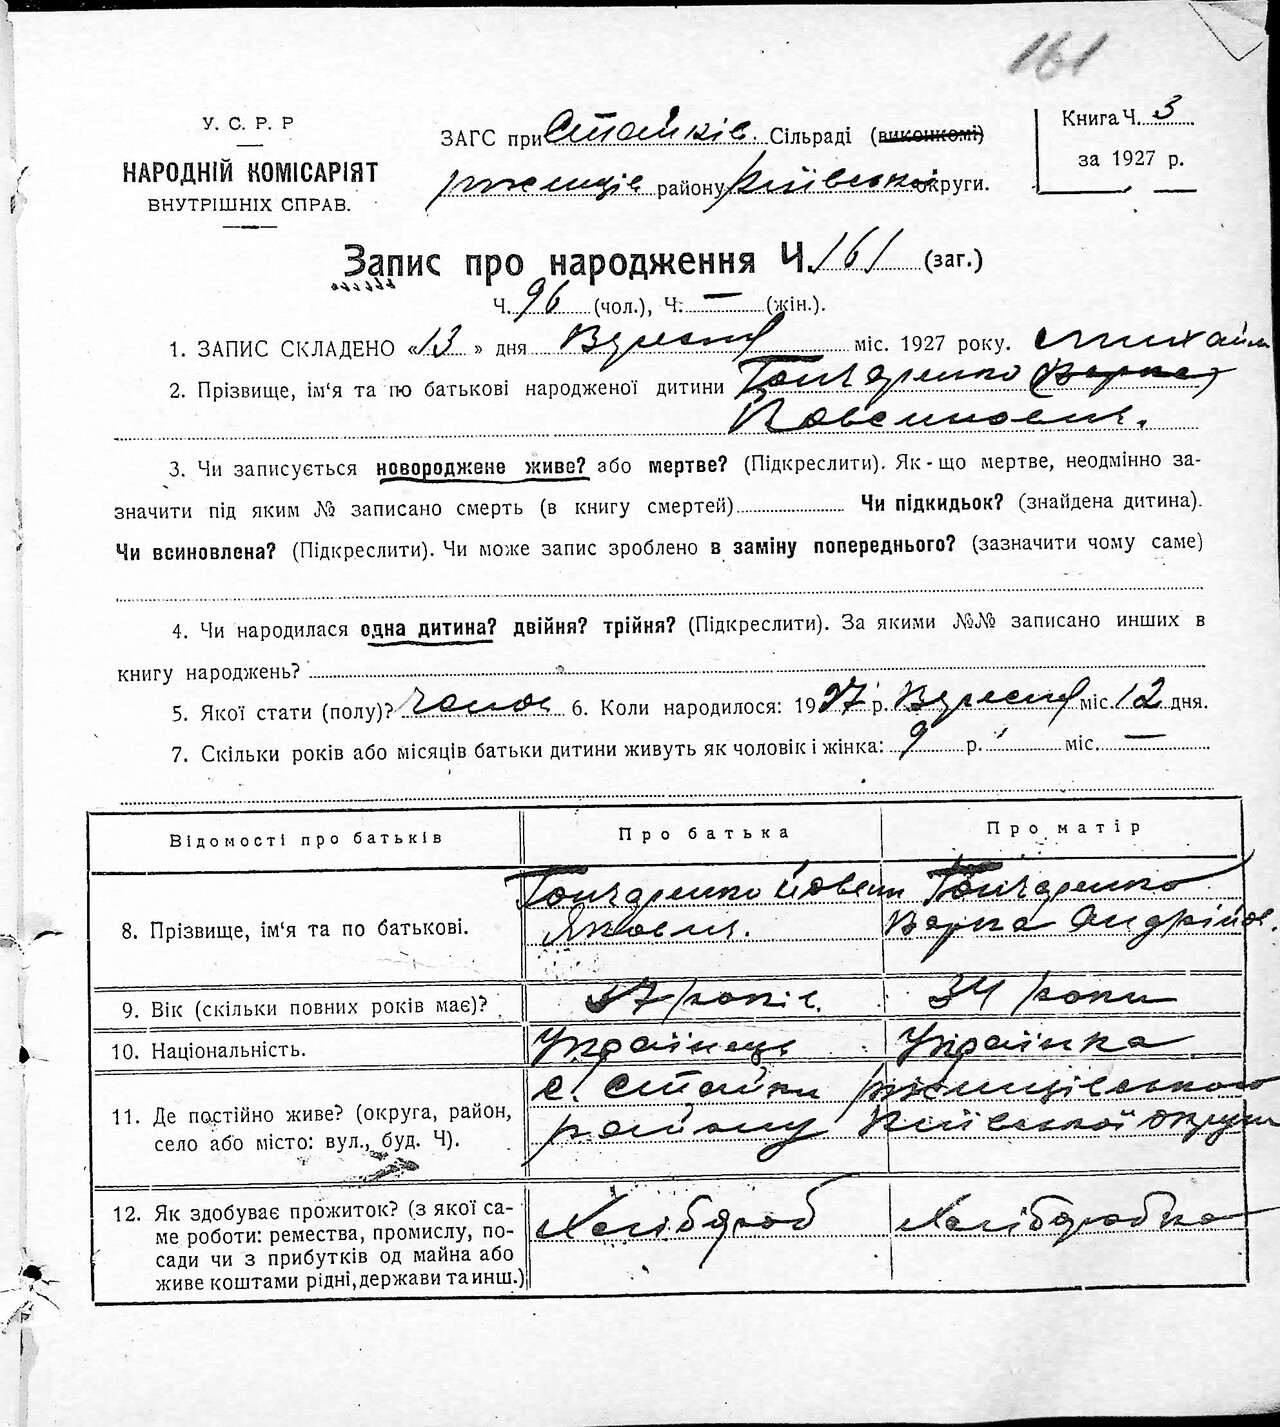 161
У. С. Р. Р
НАРОДНІЙ КОМІСАРІЯТ
ВНУТРІШНІХ СПРАВ.
ЗАГС при Стайків. Сільраді (виконкомі)
ржищів району Київської округи.
Книга Ч. 3
за 1927 р.
Запис про народження Ч. 161 (заг.)
Ч. 96 (чол.), Ч. — (жін.).
1. ЗАПИС СКЛАДЕНО «13» дня Вересня міс. 1927 року. Михайло
2. Прізвище, ім'я та по батькові народженої дитини Гончаренко (Варка)
3. Чи записується новороджене живе? або мертве? (Підкреслити). Як-що мертве, неодмінно за-
значити під яким № записано смерть (в книгу смертей) Чи підкидьок? (знайдена дитина).
Чи всиновлена? (Підкреслити). Чи може запис зроблено в заміну попереднього? (зазначити чому саме)
4. Чи народилася одна дитина? двійня? трійня? (Підкреслити). За якими №№ записано инших в
книгу народжень?
5. Якої стати (полу)? чолов 6. Коли народилося: 1927 р. Вересня міс. 12 дня.
7. Скільки років або місяців батьки дитини живуть як чоловік і жінка: 9 р. міс. —
Відомості про батьків
Про батька
Про матір
8. Прізвище, ім'я та по батькові.
Гончаренко
Яковлев.
Гончаренко
Варка Андрійов.
9. Вік (скільки повних років має)?
37 років.
34 роки
10. Національність.
Українець
Українка
11. Де постійно живе? (округа, район,
село або місто: вул., буд. Ч).
с. Стайки ржищівського
району Київської округи
12. Як здобуває прожиток? (з якої са-
ме роботи: ремества, промислу, по-
сади чи з прибутків од майна або
живе коштами рідні, держави та инш.)
Хлібороб
Хлібооробка